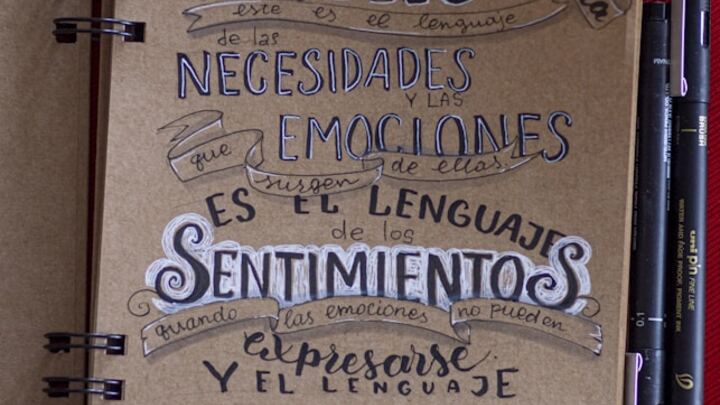 este es el lenguaje
de las
NECESIDADES
Y LAS
EMOCIONES
que surgen de ellas.
ES EL LENGUAJE
de los
SENTIMIENTOS
quando las emociones no pueden
expresarse.
Y EL LENGUAJE
0.1
uni pin FINE LINE
WATER AND FADE PROOF, PIGMENT INK